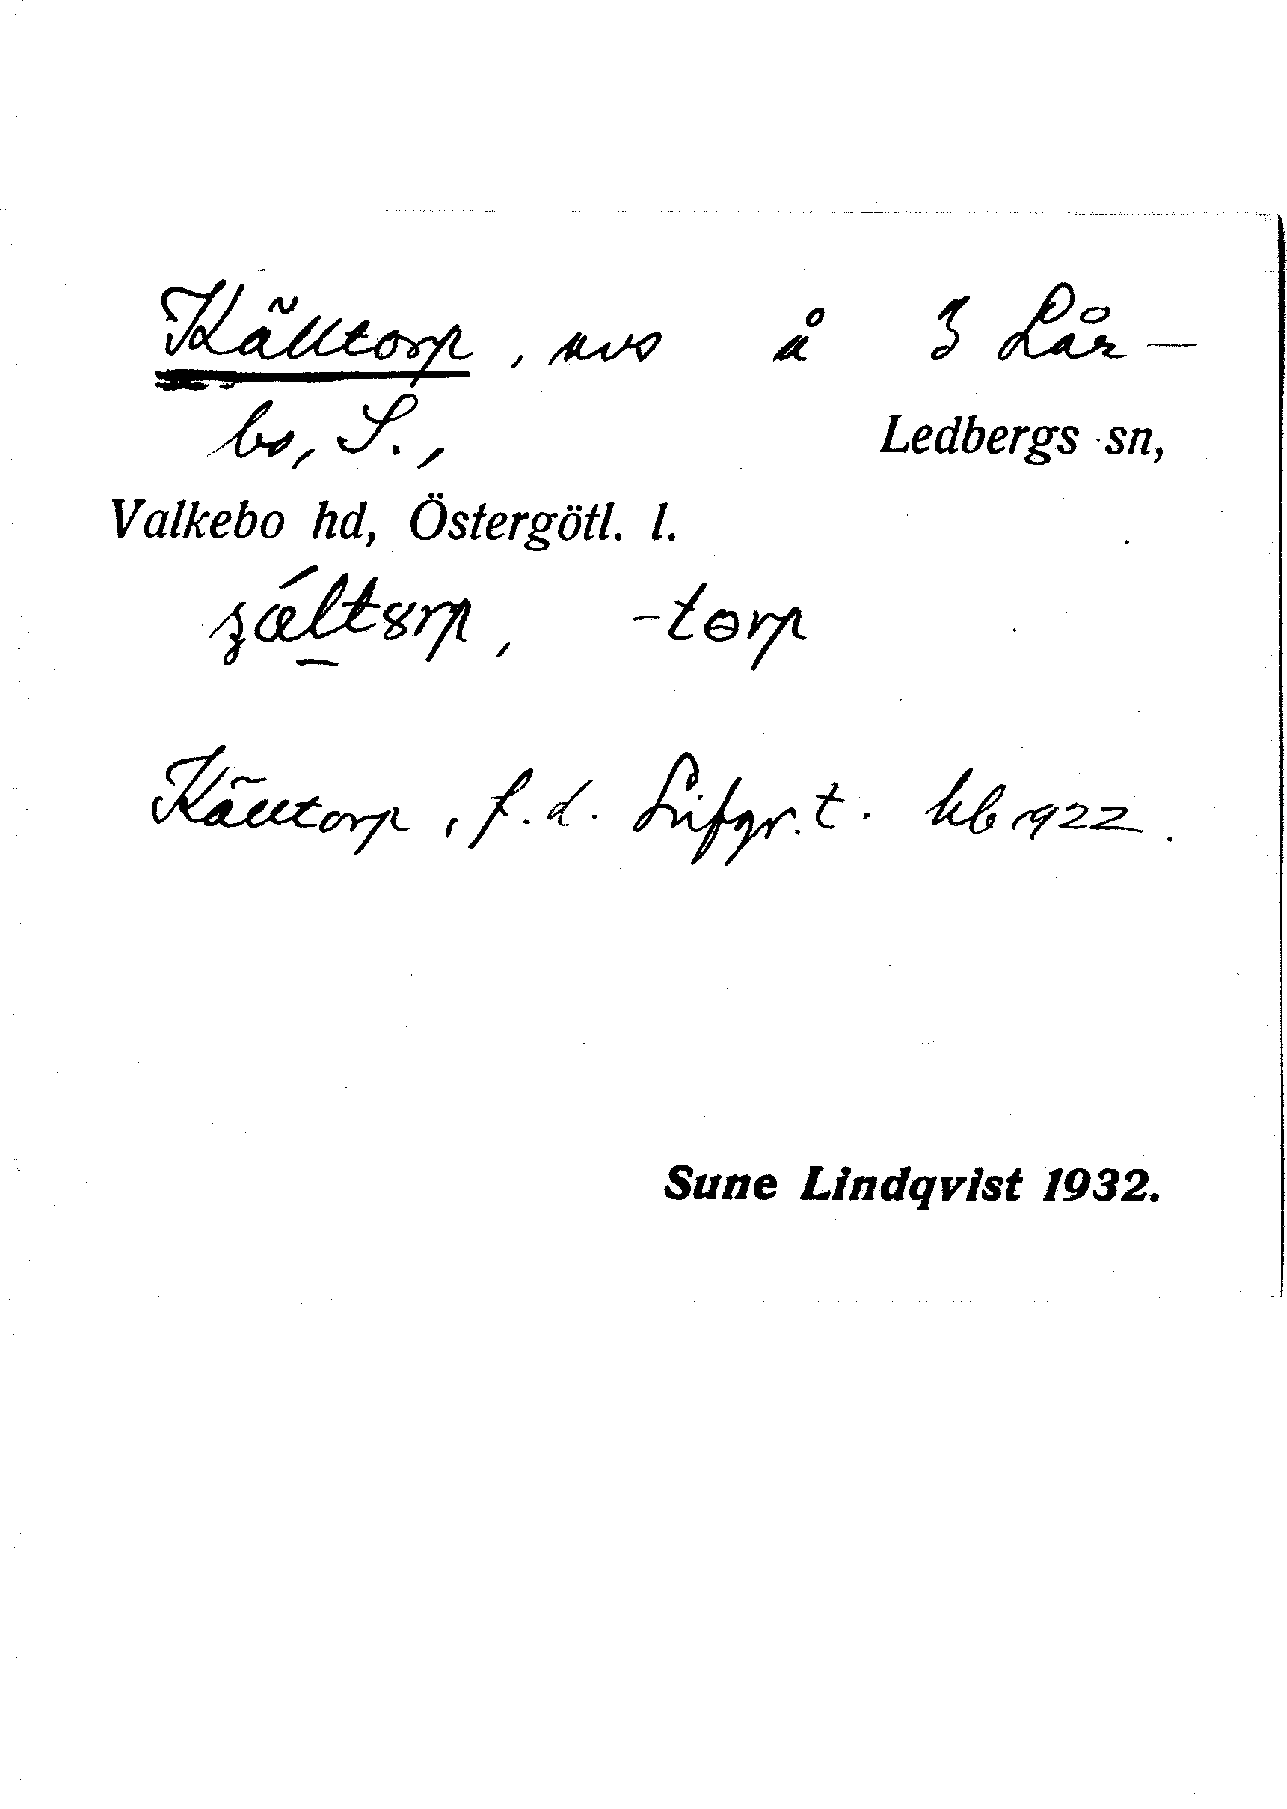 Källtorp, avs å 3 Lår-
bo, S., Ledbergs sn,
Valkebo hd, Östergötl. l.
-torp
Källtorp, f.d. Lifgr.t. hb 1922.
Sune Lindqvist 1932.